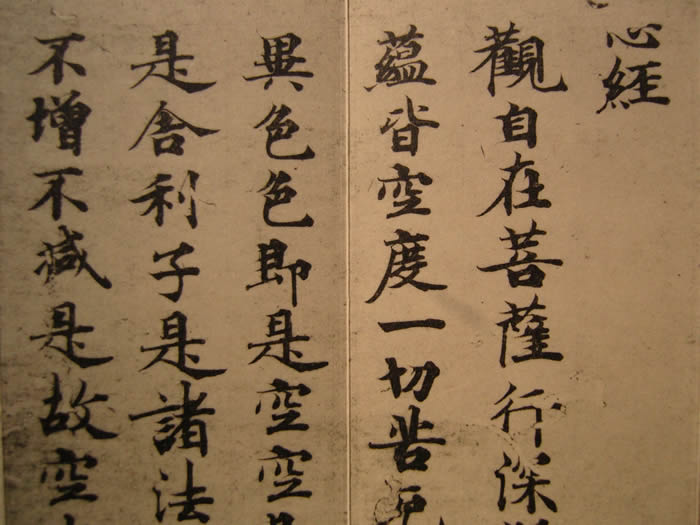 心經
觀自在菩薩行深
蘊皆空度一切苦厄
異色色即是空空
是舍利子是諸法
不增不減是故空